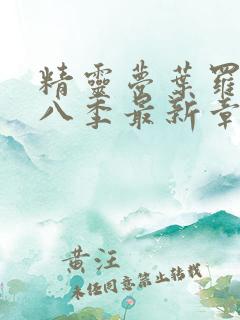 精靈夢葉羅
八季最新章
黄汪
未径同意禁止转载